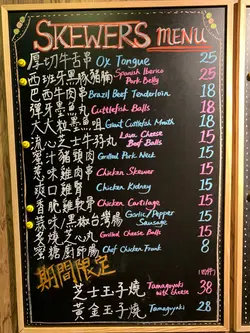 SKEWERS MENU
厚切牛舌串 Ox Tongue 25
西班牙黑豚豬腩 Spanish Iberico Pork Belly 25
巴西牛肉串 Brazil Beef Tenderloin 18
彈牙墨魚丸 Cuttlefish Balls 18
大大粒墨魚咀 Giant Cuttlefish Mouth 18
流心芝士牛孖丸 Lava Cheese Beef Balls 15
蜜汁豬頸肉 Grilled Pork Neck 15
惹味雞肉串 Chicken Skewer 15
爽口雞腎 Chicken Kidney 15
香脆雞軟骨 Chicken Cartilage 15
蒜味/黑椒台灣腸 Garlic/Pepper Sausage 15
炙燒芝心丸 Grilled Cheese Balls 15
蜜糖廚師腸 Chef Chicken Frank 8
期間限定
芝士玉子燒 Tamagoyaki with cheese 38
黃金玉子燒 Tamagoyaki 28